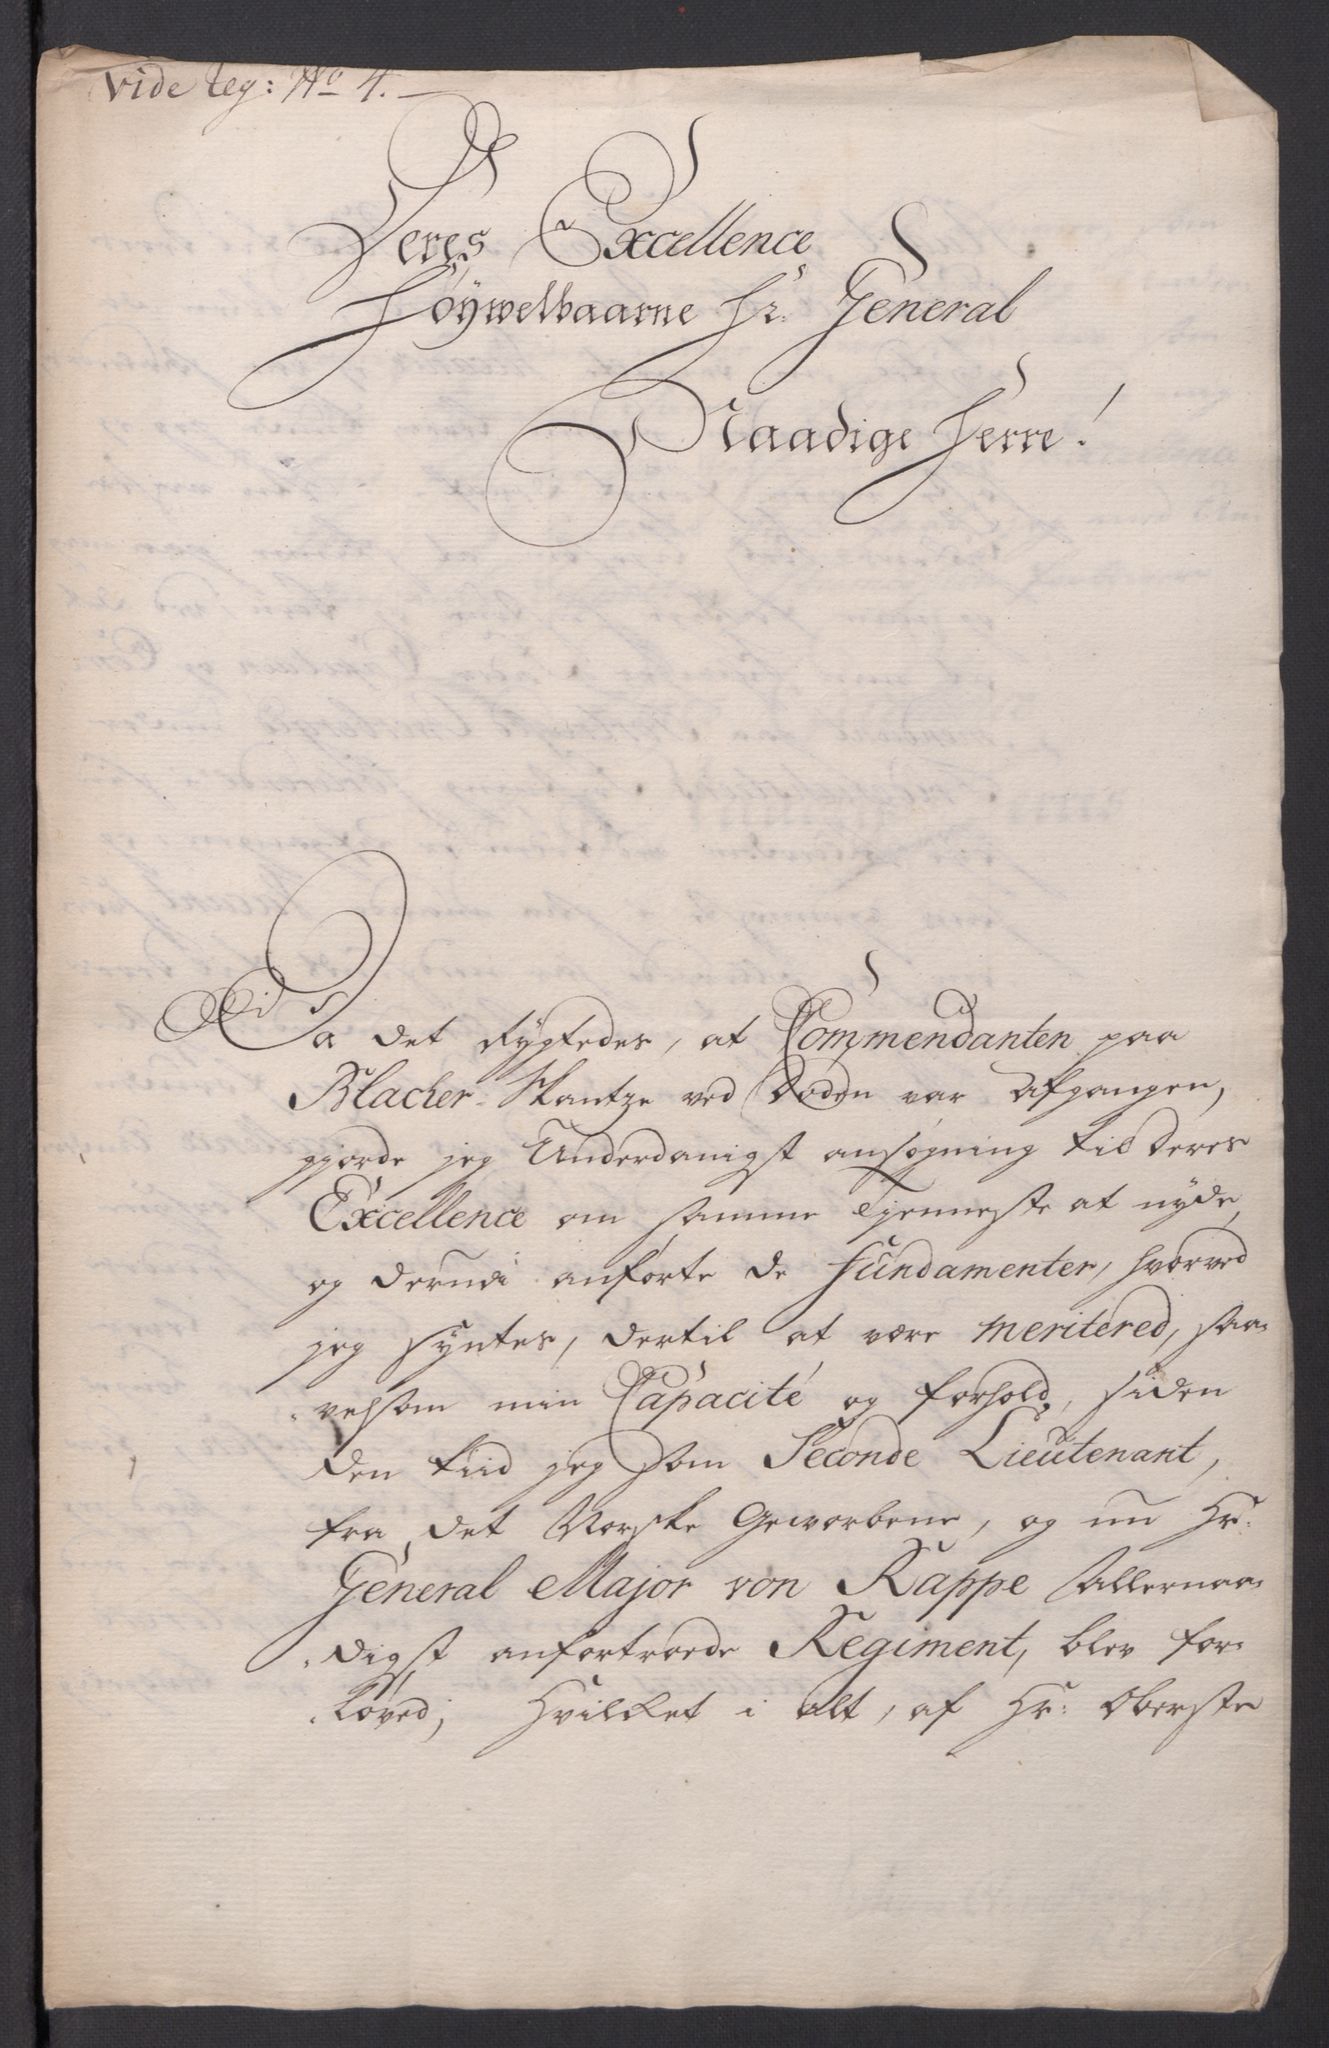 Vide Reg: No 4.
Deres Excellence
Høywelbaarne Hr: General
Naadige Herre!
Da det Rygtedes, at Commendanten paa
Blacher-Skantze ved Døden var Afgangen,
gjorde jeg Underdanigst ansøgning til Deres
Excellence om samme Tjenneste at nyde,
og derudi anførte de Fundamenter, hvorved
jeg syntes, dertil at være meritered, saa-
velsom min Capacité og forhold, siden
den tiid jeg som Seconde Lieutenant,
fra det Norske Geworbene, og nu Hr:
General Major von Kappe Allernaa-
digst anfortroede Regiment, blev for-
løved; Hvilket i alt, af Hr: Oberste